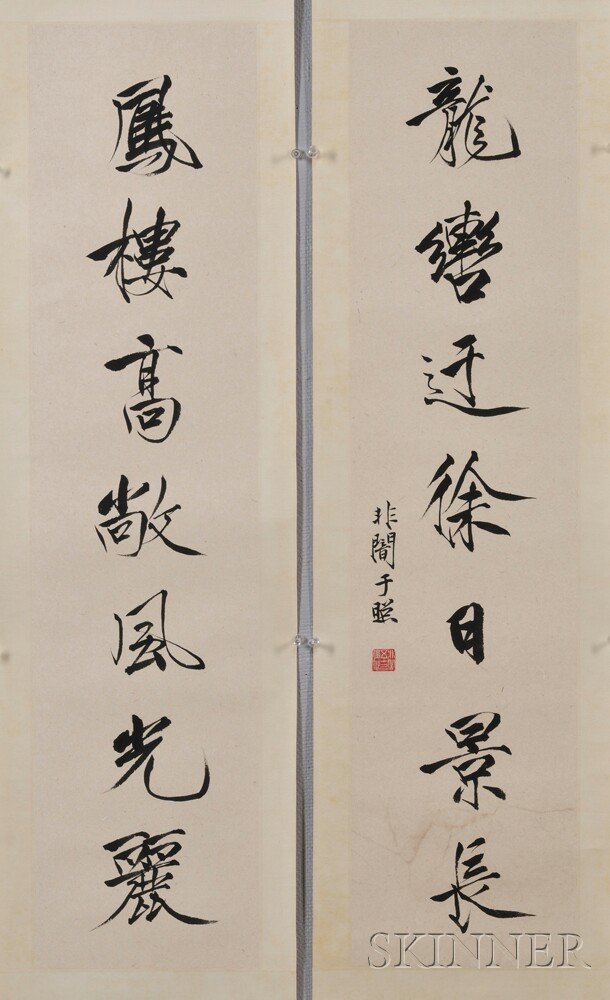 龍轡迂徐日景長
非闇于照
鳳樓高敞風光麗
SKINNER